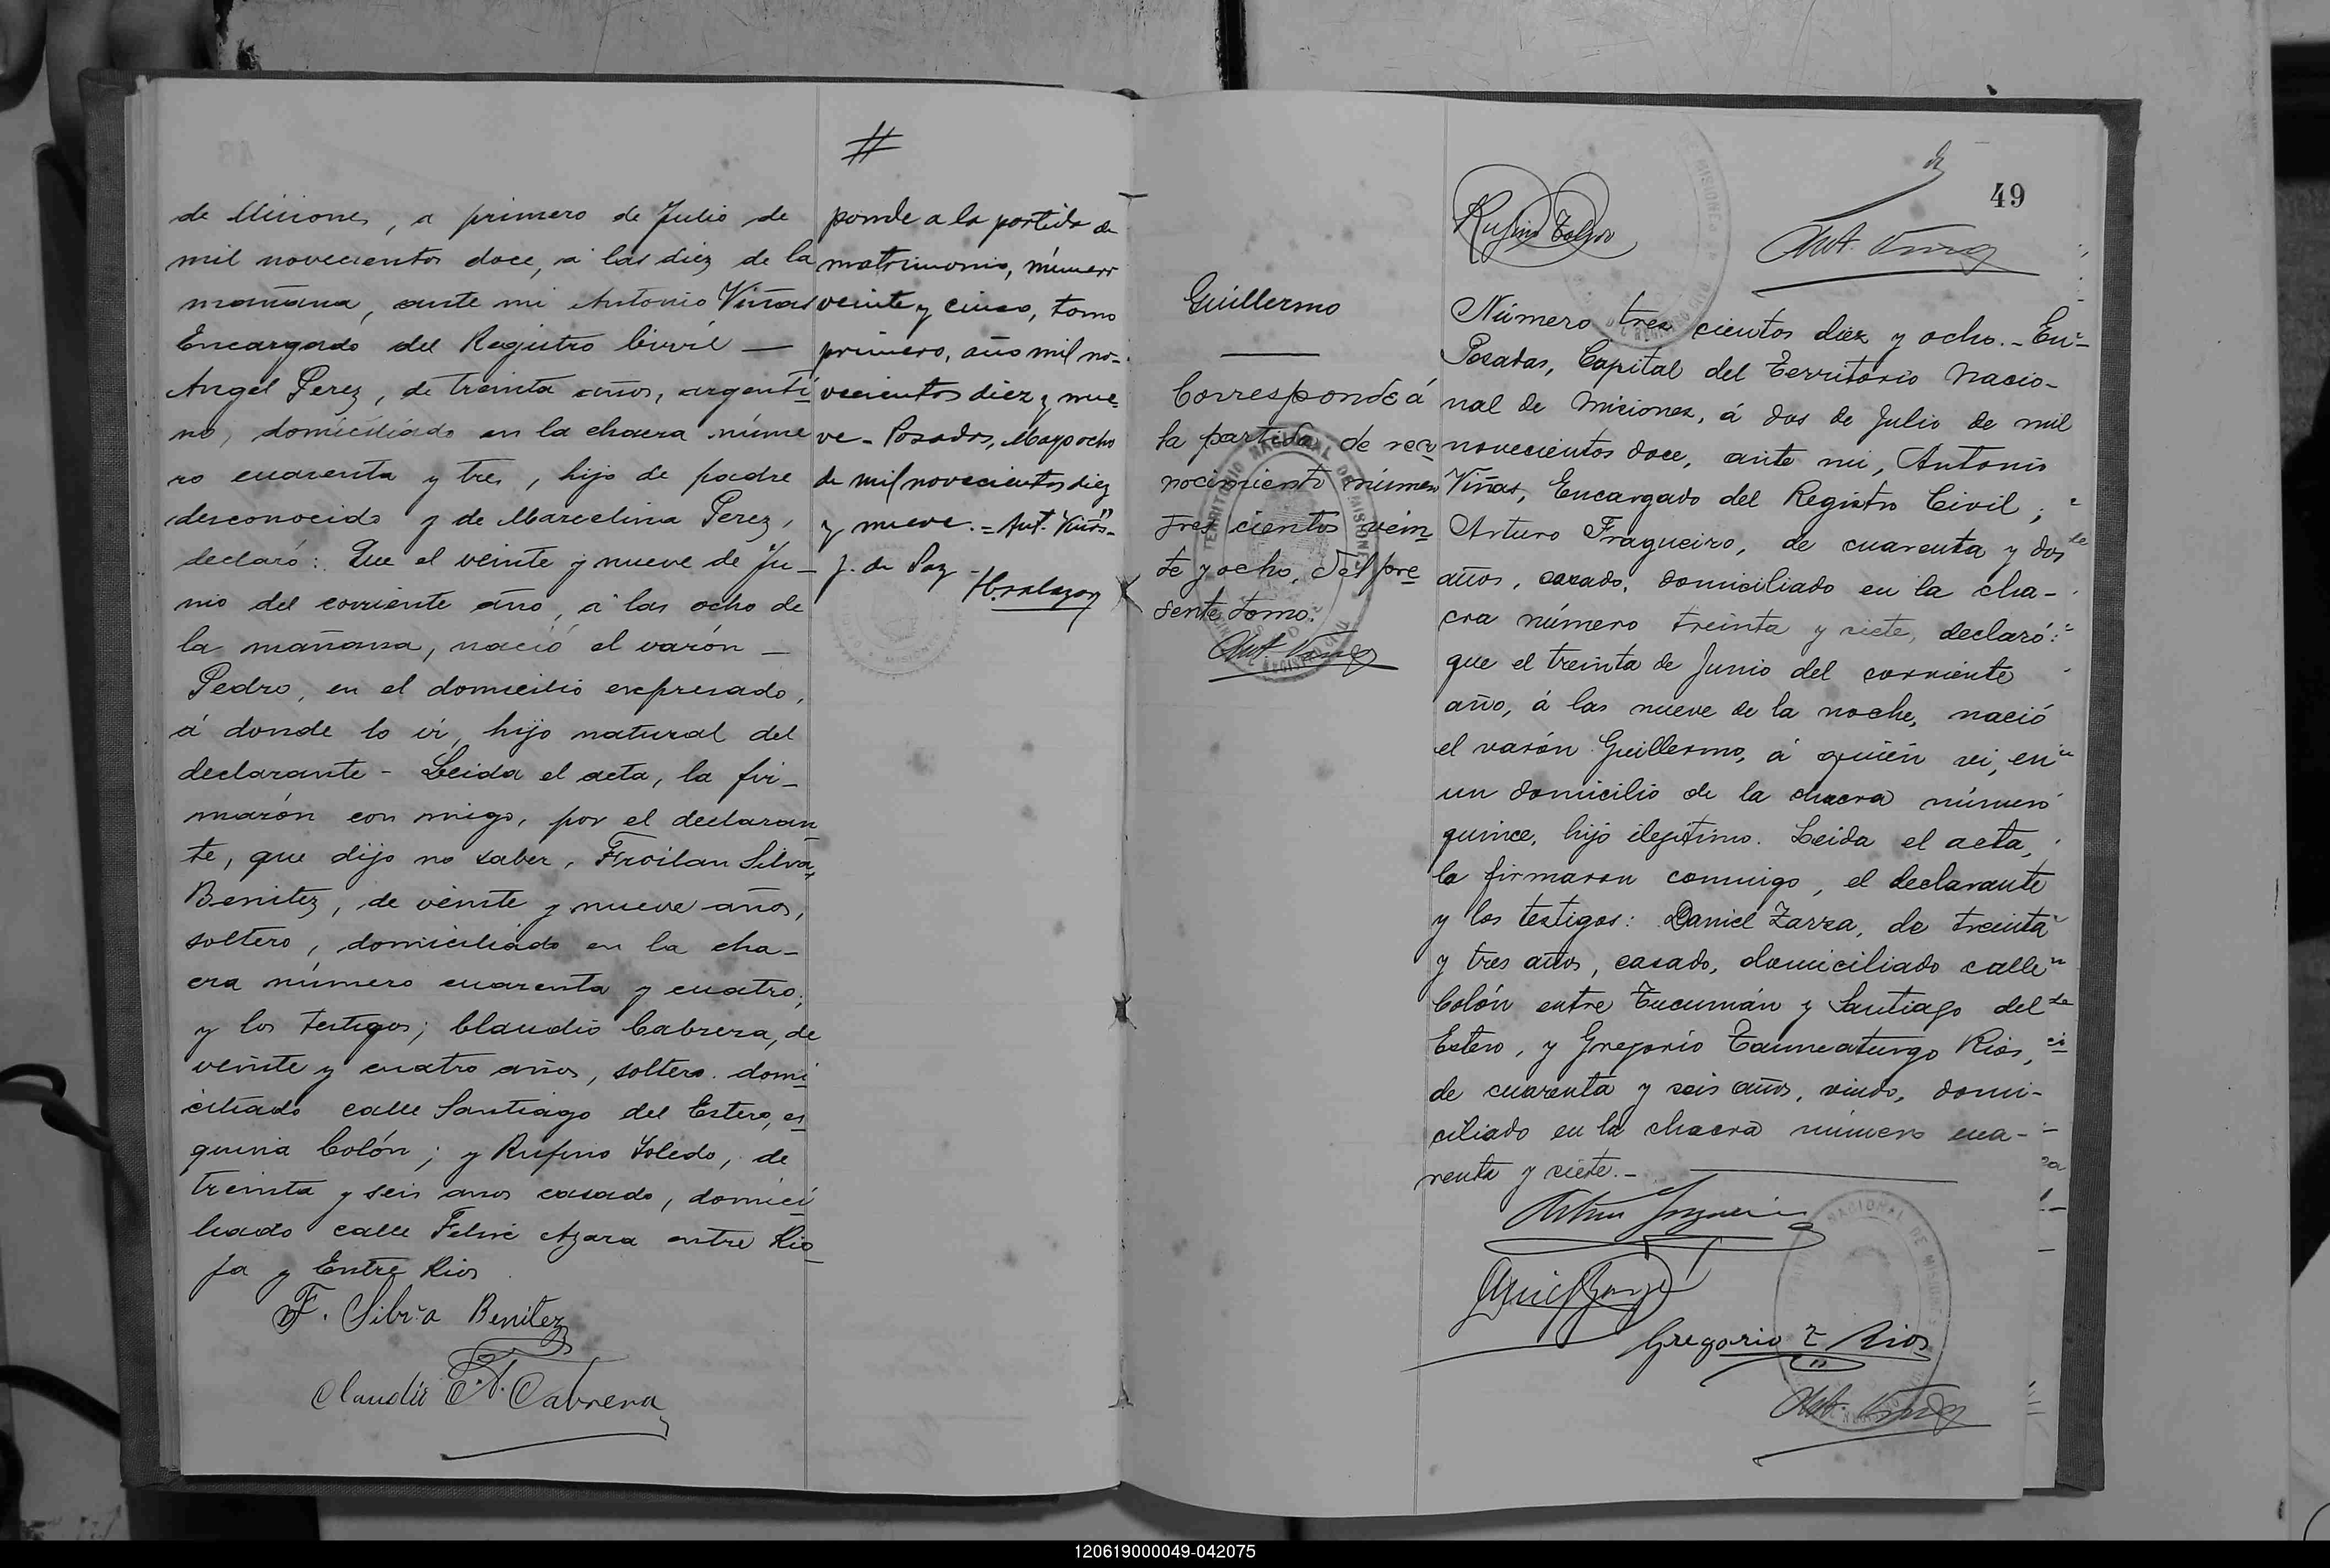 de Misiones, a primero de Julio de
mil novecientos doce, a las diez de la
mañana, ante mi Antonio Viñas
Encargado del Registro Civil —
Angel Perez, de treinta años, argenti
no, domiciliado en la chacra núme
ro cuarenta y tres, hijo de padre
desconocido y de Marcelina Perez,
declaró: Que el veinte y nueve de Ju-
nio del corriente año, a las ocho de
la mañana, nació el varón —
Pedro, en el domicilio expresado,
á donde lo vi, hijo natural del
declarante - Leida el acta, la fir-
marón con migo, por el declaran
te, que dijo no saber, Froilan Silva
Benitez, de veinte y nueve años,
soltero, domiciliado en la cha-
cra número cuarenta y cuatro;
y los testigos; Claudio Cabrera, de
veinte y cuatro años, soltero. domi
ciliado calle Santiago del Estero, es
quina Colón; y Rufino Toledo, de
treinta y seis anos casado, domici
liado calle Felix Azara entre Rio
ja y Entre Rios
F. Silva Benitez
Claudio F. Cabrera
#
ponde a la partida de
matrimonio, número
veinte y cinco, tomo
primero, año mil no-
vecientos diez y nue-
ve - Posadas, Mayo ocho
de mil novecientos diez
y nueve. - Ant. Viñas -
J. de Paz -
Guillermo
Corresponde á
la partida de reco
nocimiento número
tres cientos vein
te y ocho, del pre
sente tomo.
Ant. Viñas
TERRITORIO NACIONAL DE MISIONES
49
Rufino Toledo
Ant. Viñas
Número tres cientos diez y ocho. - En
Posadas, Capital del Territorio Nacio-
nal de Misiones, á dos de Julio de mil
novecientos doce, ante mi, Antonio
Viñas, Encargado del Registro Civil;
Arturo Fragueiro, de cuarenta y dos
años, casado, domiciliado en la cha-
cra número treinta y siete, declaró:
que el treinta de Junio del corriente
año, á las nueve de la noche, nació
el varón Guillermo, á quien vi, en
un domicilio de la chacra número
quince, hijo ilegítimo. Leida el acta,
la firmaron conmigo, el declarante
y los testigos: Daniel Zarza, de treinta
y tres años, casado, domiciliado calle
Colón entre Tucumán y Santiago del
Estero, y Gregorio Taumaturgo Rios,
de cuarenta y seis años, viudo, domi-
ciliado en la chacra número cua-
renta y siete. -
Arturo Fragueiro
Gregorio T Rios
Ant. Viñas
120619000049-042075